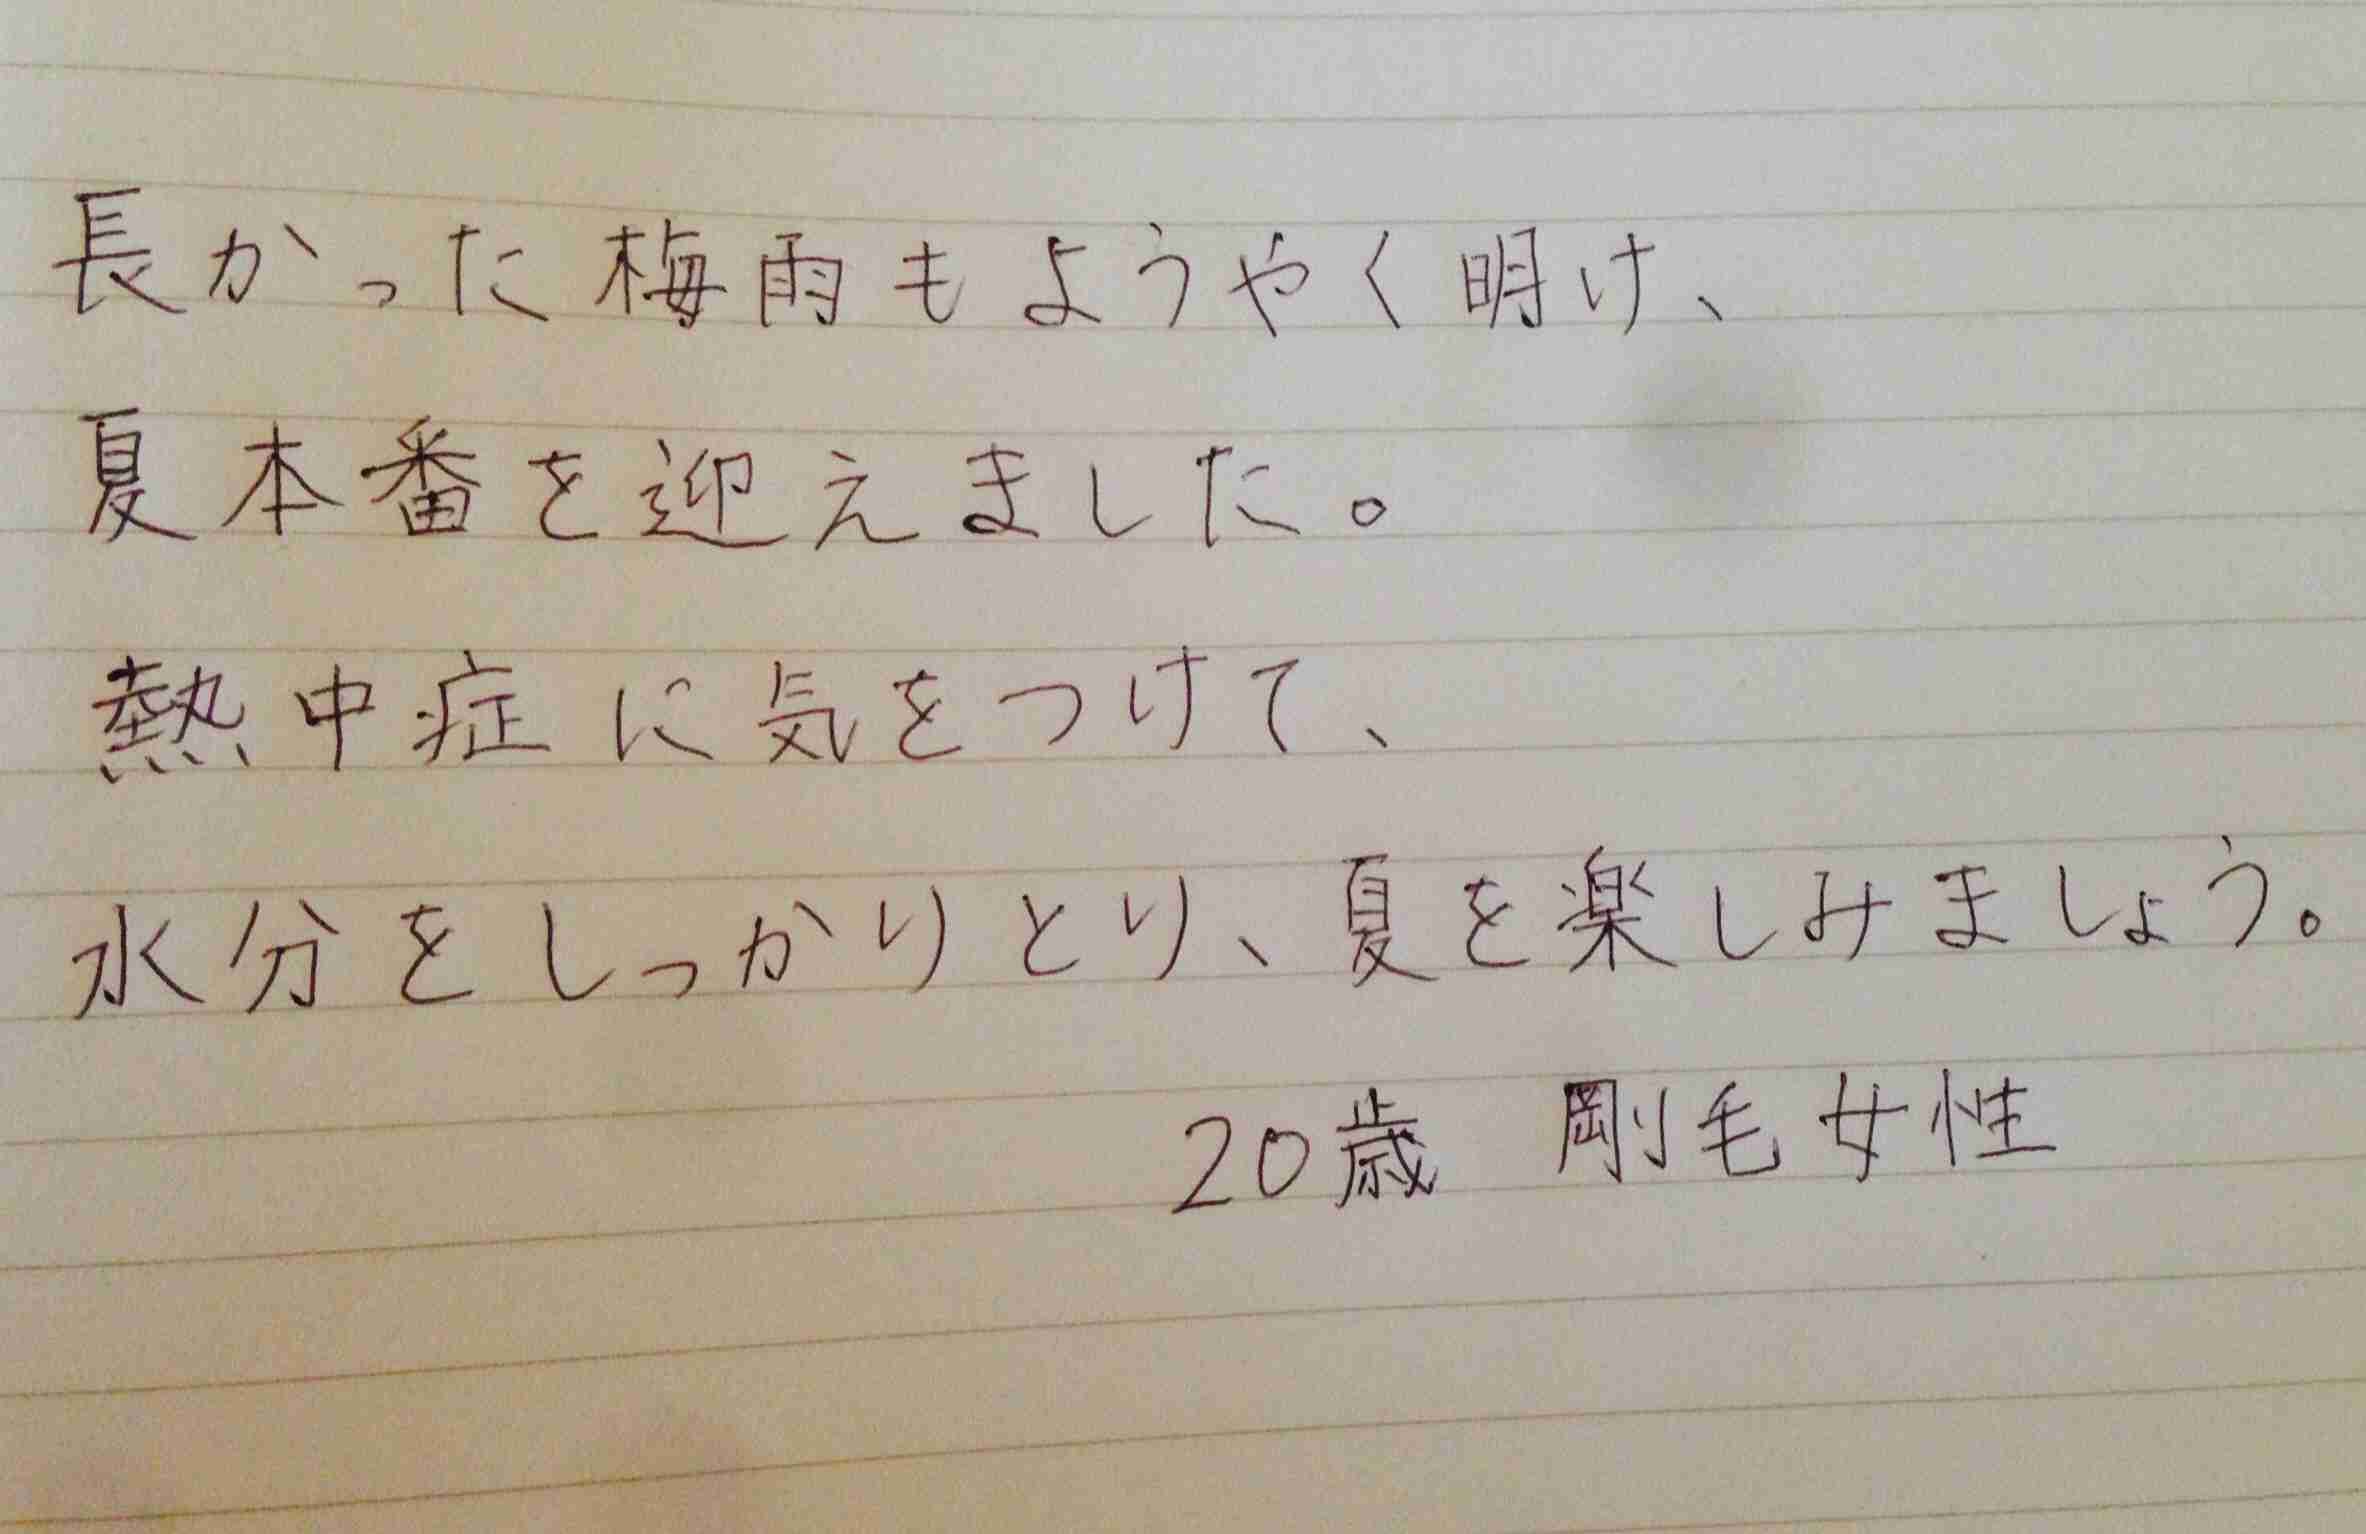 長かった梅雨もようやく明け、
夏本番を迎えました。
熱中症に気をつけて、
水分をしっかりとり、夏を楽しみましょう。
20歳 剛毛女性